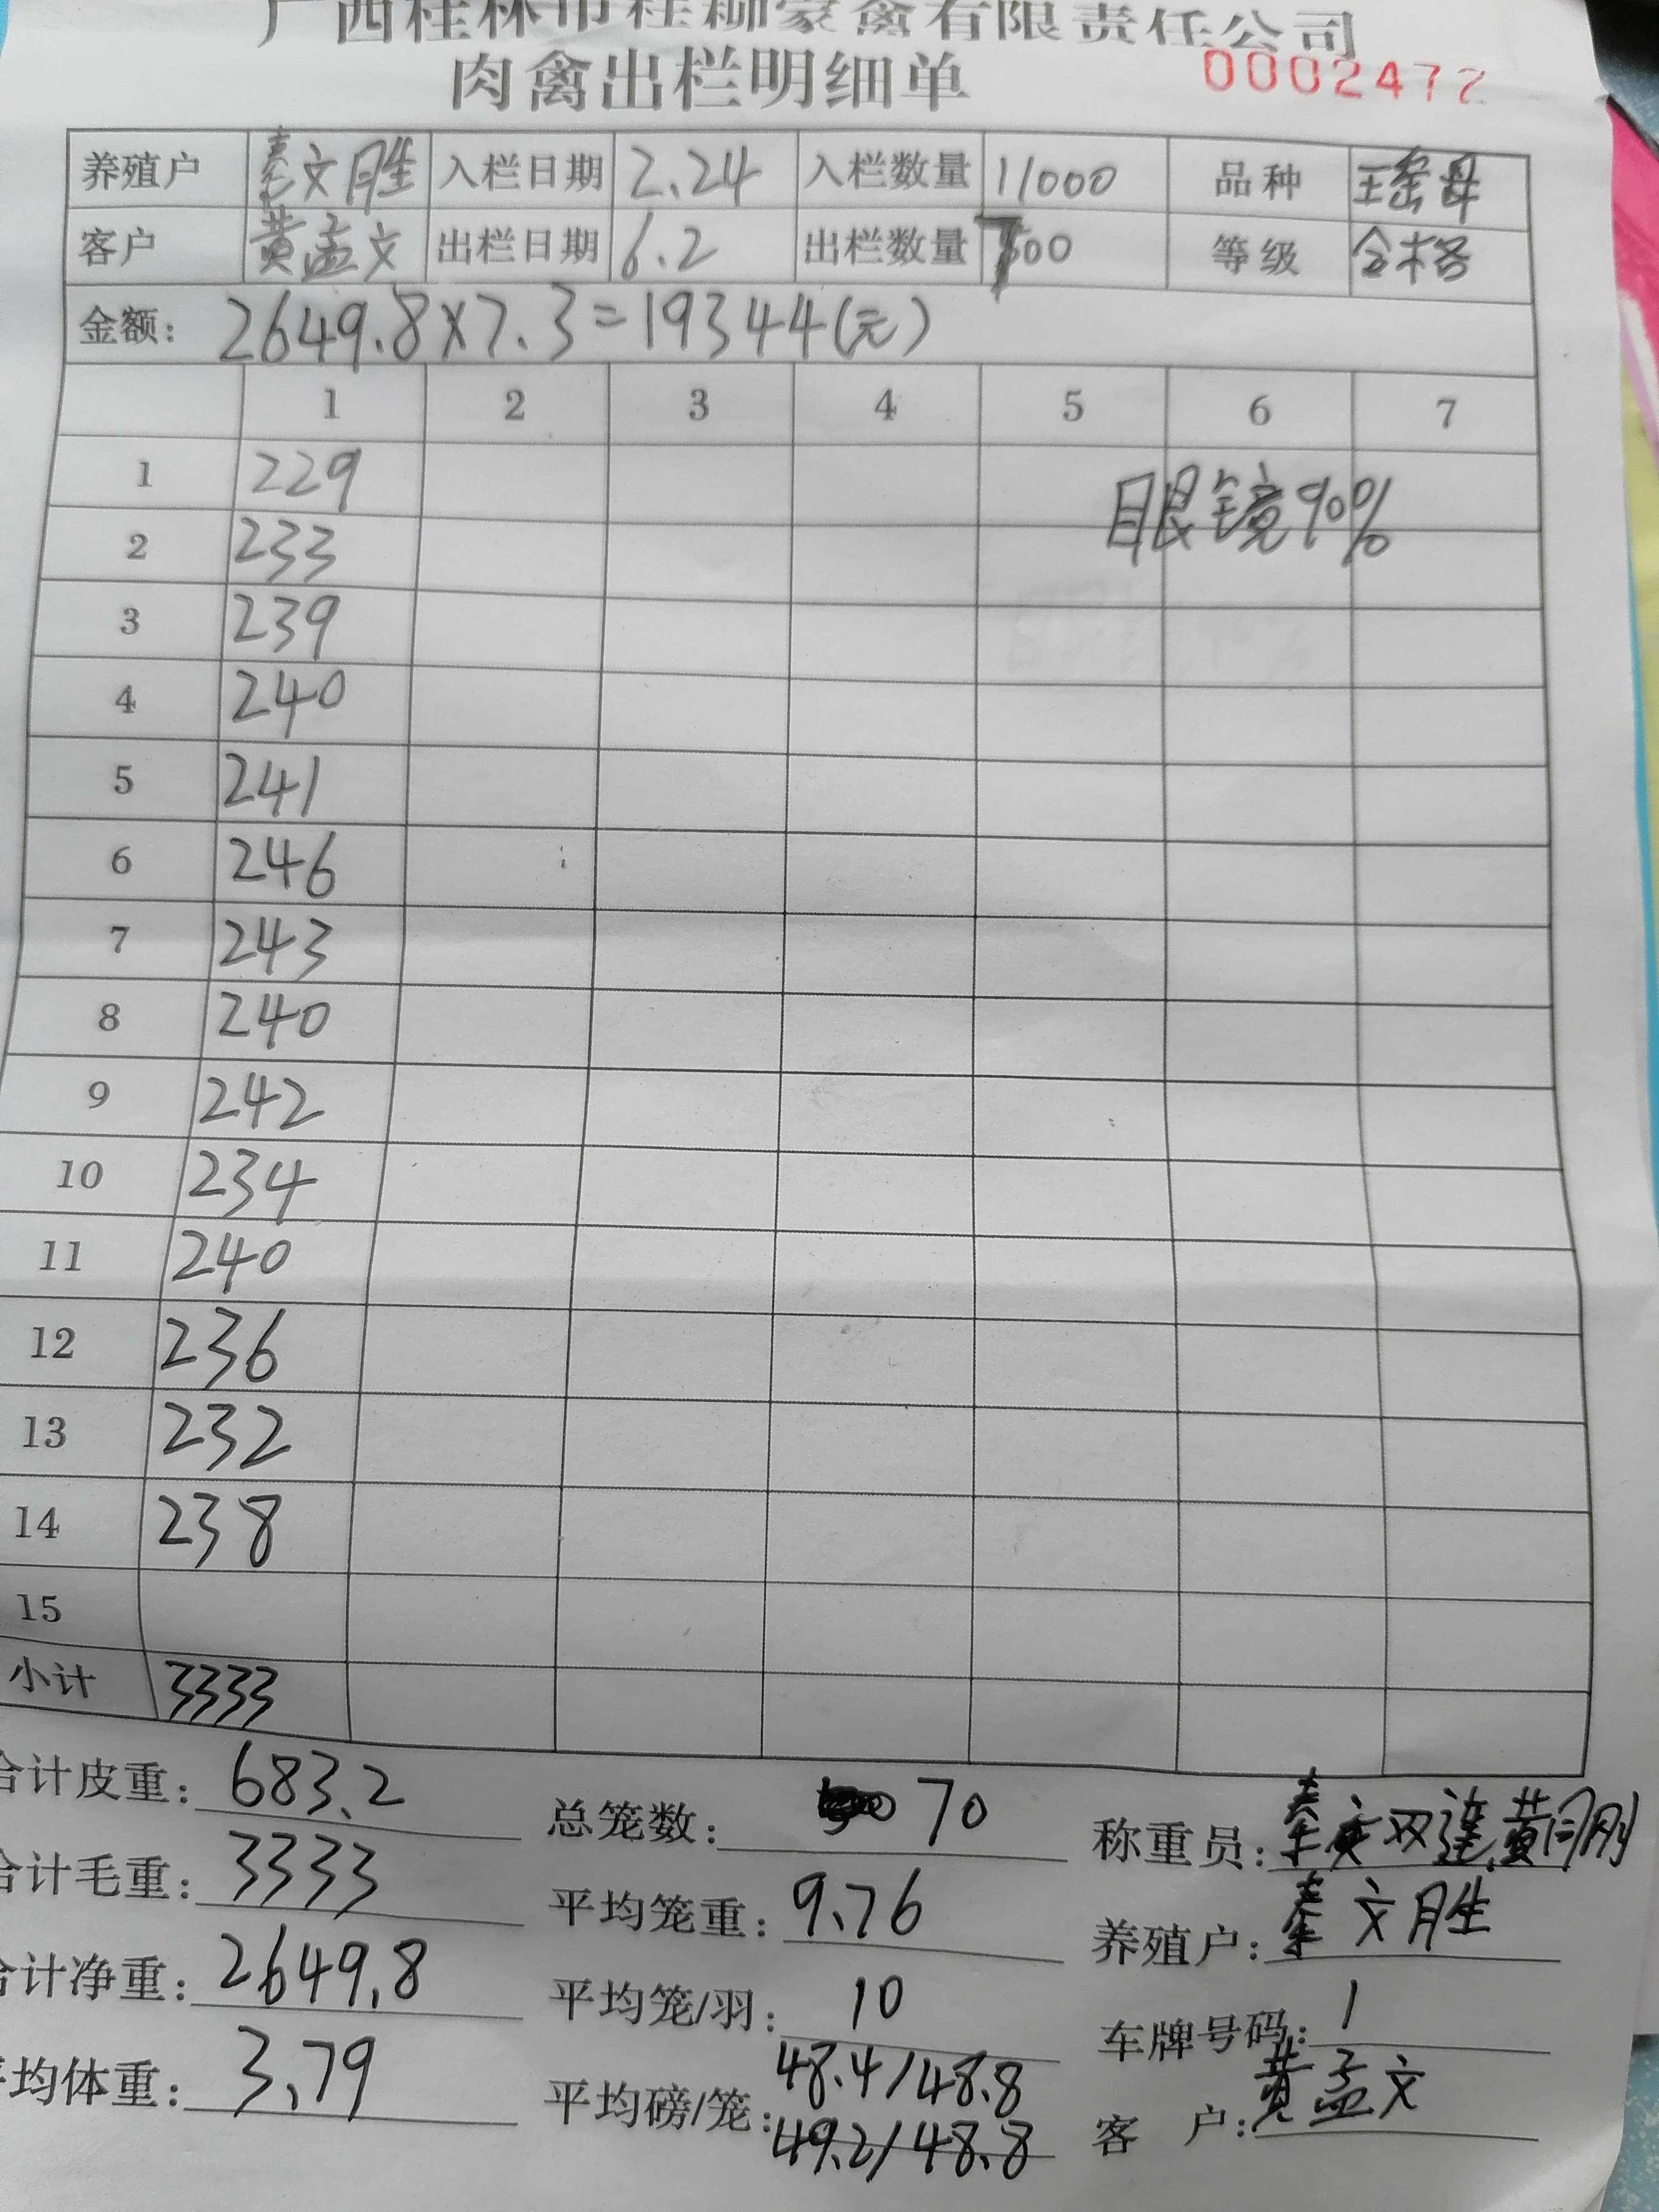 广西桂林市桂柳家禽有限责任公司
肉禽出栏明细单 0002472
养殖户 秦文胜 入栏日期 2.24 入栏数量 11000 品种 王瑶母
客户 黄孟文 出栏日期 6.2 出栏数量 700 等级 合格
金额: 2649.8×7.3=19344(元)
1 2 3 4 5 6 7
1 229 眼镜90%
2 233
3 239
4 240
5 241
6 246
7 243
8 240
9 242
10 234
11 240
12 236
13 232
14 238
15
小计 3333
合计皮重: 683.2 总笼数: 70 称重员: 秦双莲黄刚
合计毛重: 3333 平均笼重: 9.76 养殖户: 秦文胜
合计净重: 2649.8 平均笼/羽: 10 车牌号码: 1
平均体重: 3.79 平均磅/笼: 48.4/48.8 客 户: 黄孟文
49.2/48.8